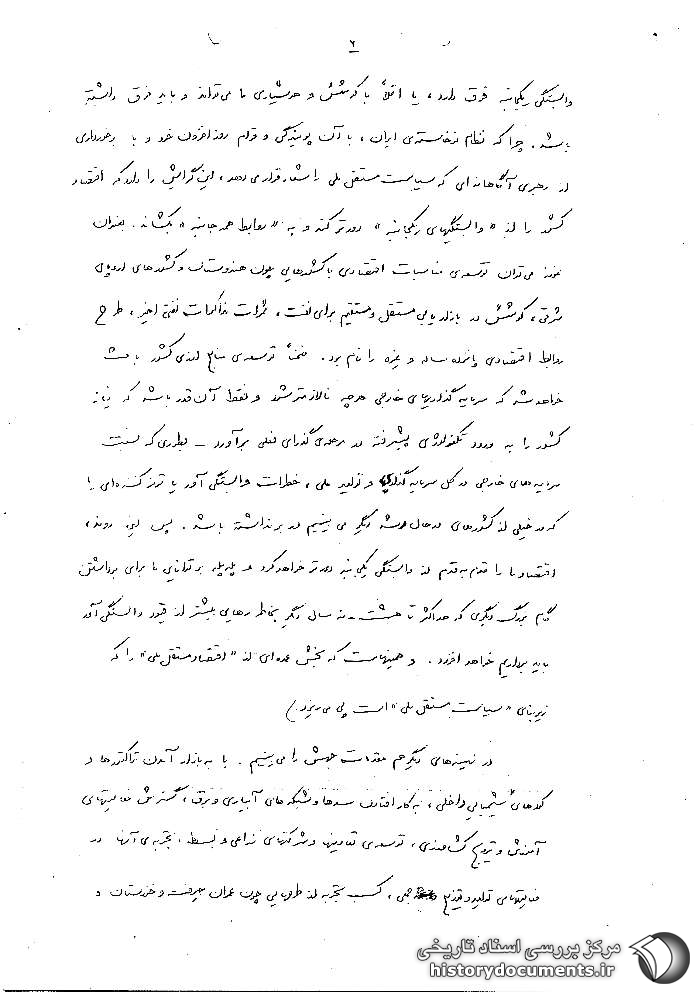 ۶
وابستگی یکجانبه فرق دارد، یا اقلاً با کوشش و هوشیاری ما می‌تواند و باید فرق داشته
باشد. چرا که نظام نوخاسته‌ی ایران، با آن پویندگی و قوام روزافزون خود و با برخورداری
از رهبری آگاهانه‌ای که سیاست مستقل ملی را شعار قرار می‌دهد، این گرایش را دارد که اقتصاد
کشور را از «وابستگیهای یکجانبه» دورتر کند و به «روابط همه جانبه» بکشاند. بعنوان
نمونه می‌توان توسعه‌ی مناسبات اقتصادی با کشورهایی چون هندوستان و کشورهای اروپای
شرقی، کوشش در بازاریابی مستقل و مستقیم برای نفت، ثمرات مذاکرات نفتی اخیر، طرح
روابط اقتصادی پانزده ساله و غیره را نام برد. ضمناً توسعه‌ی منابع ارزی کشور باعث
خواهد شد که سرمایه گذاریهای خارجی هرچه نالازمتر شود و فقط آن قدر باشد که نیاز
کشور را به ورود تکنولوژی پیشرفته در مرحله‌ی گذرای فعلی برآورد – بطوری که نسبت
سرمایه‌های خارجی در کل سرمایه گذاری و تولید ملی، خطرات وابستگی آور یا ترمز کننده‌ای را
که در خیلی از کشورهای در حال رشد دیگر می‌بینیم در بر نداشته باشد. پس این روند،
اقتصاد ما را قدم به قدم از وابستگی یکجانبه دورتر خواهد کرد و پله پله بر توانایی ما برای برداشتن
گام بزرگ دیگری که حداکثر تا هشت - نه سال دیگر بخاطر رهایی بیشتر از قیود وابستگی آور
باید برداریم خواهد افزود. و همینهاست که بخش عمده‌ای از «اقتصاد مستقل ملی» را که
زیربنای «سیاست مستقل ملی» است پی می‌ریزد.)
در زمینه‌های دیگر هم مقدمات جهش را می‌بینیم. با به بازار آمدن تراکتورها و
کودهای شیمیایی داخلی، به کار افتادن سدها و شبکه‌های آبیاری و برق، گسترش فعالیتهای
آموزش و ترویج کشاورزی، توسعه‌ی تعاونیها و شرکتهای زراعی و بسط تجربه‌ی آنها در
فعالیتهای تولید و توزیع جمعی، کسب تجربه از طرحهایی چون عمران جیرفت و خوزستان و
مرکز بررسی اسناد تاریخی
historydocuments.ir